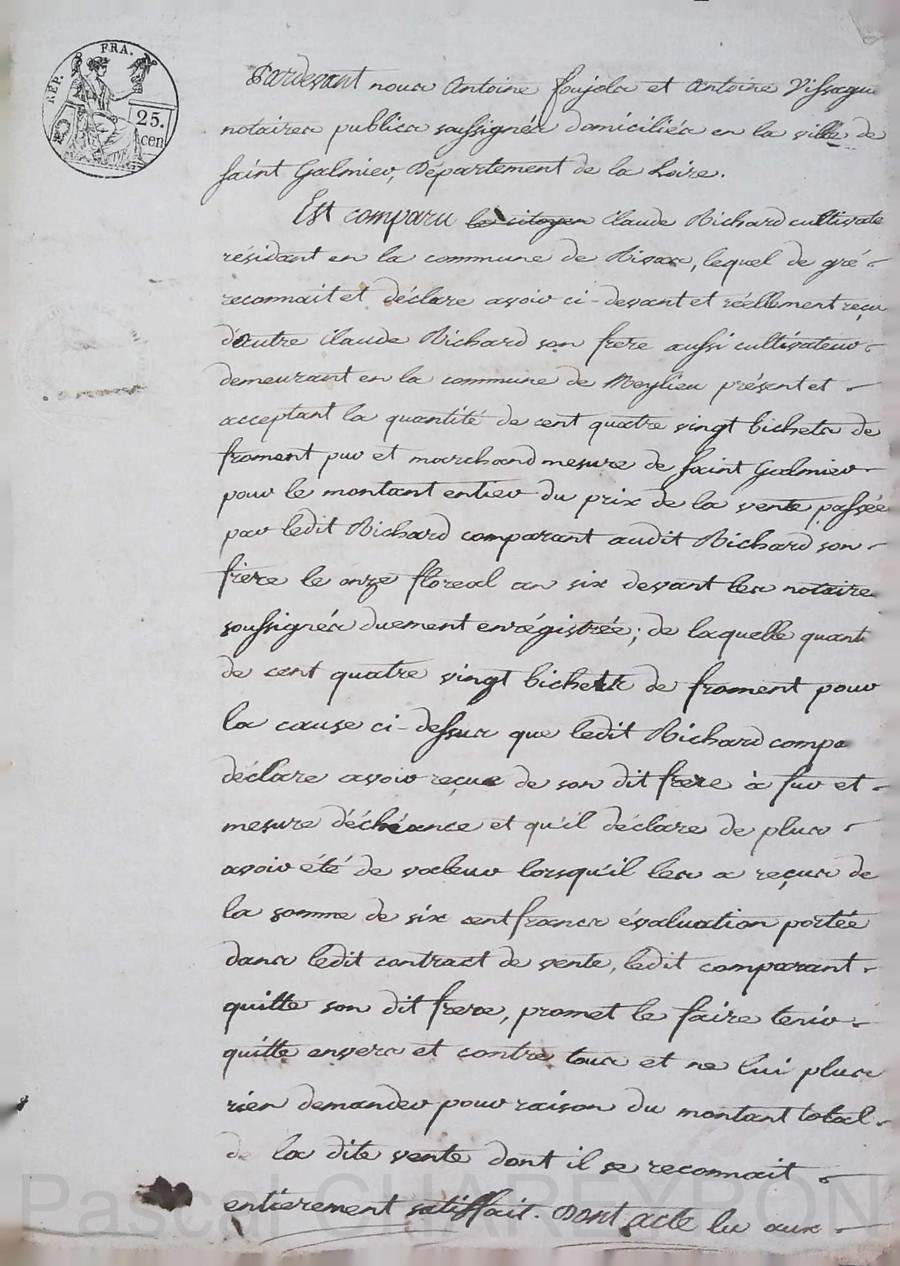 RÉP. FRA.
25.
cen
Pardevant nous Antoine foujols et Antoine Vissagu
notaires publics soussignés domiciliés en la ville de
saint Galmier, Département de la Loire.
Est comparu le citoyen Claude Richard cultivate
résidant en la commune de Rivas, lequel de gré
reconnait et déclare avoir ci-devant et réellement reçu
d'autre claude Richard son frere aussi cultivateur
demeurant en la commune de Meylieu présent et
acceptant la quantité de cent quatre vingt bichets de
froment pur et marchand mesure de saint Galmier
pour le montant entier du prix de la vente passée
par ledit Richard comparant audit Richard son
frère le onze floreal an six devant les notaire
soussignés duement enrégistrée; de laquelle quanti
de cent quatre vingt bichets de froment pour
la cause ci-dessus que ledit Richard compa
déclare avoir reçue de son dit frere à fur et
mesure d'échéance et qu'il déclare de plus
avoir été de valeur lorsqu'il les a reçus de
la somme de six cent francs évaluation portée
dans ledit contract de vente, ledit comparant
quitte son dit frere, promet le faire tenir
quitte envers et contre tous et ne lui plus
rien demander pour raison du montant total
de la dite vente dont il se reconnait
entierement satisfait. Dont acte lu aux
Pascal CHAREYRON